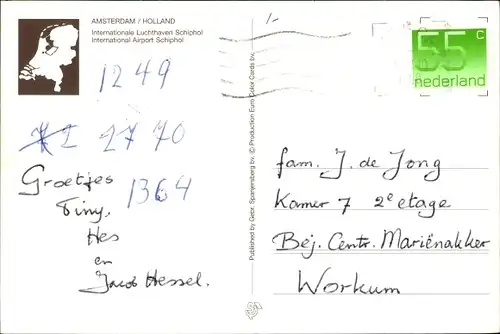 AMSTERDAM / HOLLAND
Internationale Luchthaven Schiphol
International Airport Schiphol
1-
55 c
nederland
1249
2770
1364
Groetjes
Tiny,
Hes
en
Jacob Hessel.
Published by Gebr. Spanjersberg bv. © Production Euro Color Cards bv.
fam. J. de Jong
Kamer 7 2e etage
Bej. Centr. Mariënakker
Workum